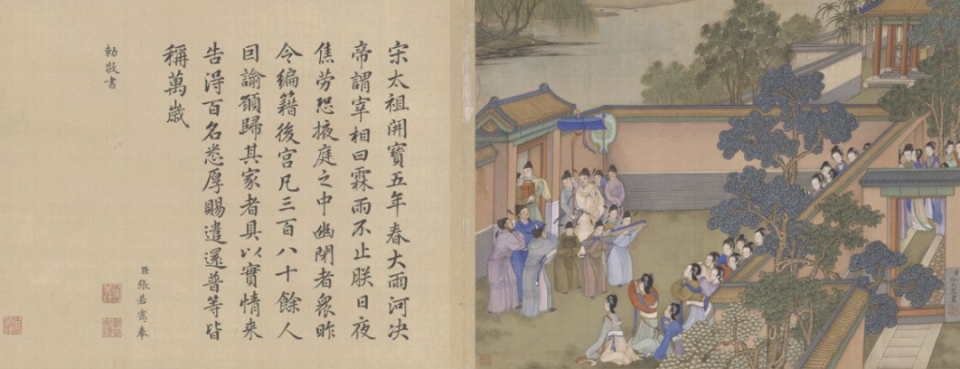 宋太祖開寶五年春大雨河决
帝謂宰相曰霖雨不止朕日夜
焦勞恐掖庭之中幽閉者衆昨
令編籍後宮凡三百八十餘人
因諭願歸其家者具以實情来
告淂百名悉厚賜遣還普等皆
稱萬歲
臣張若靄奉
勅敬書